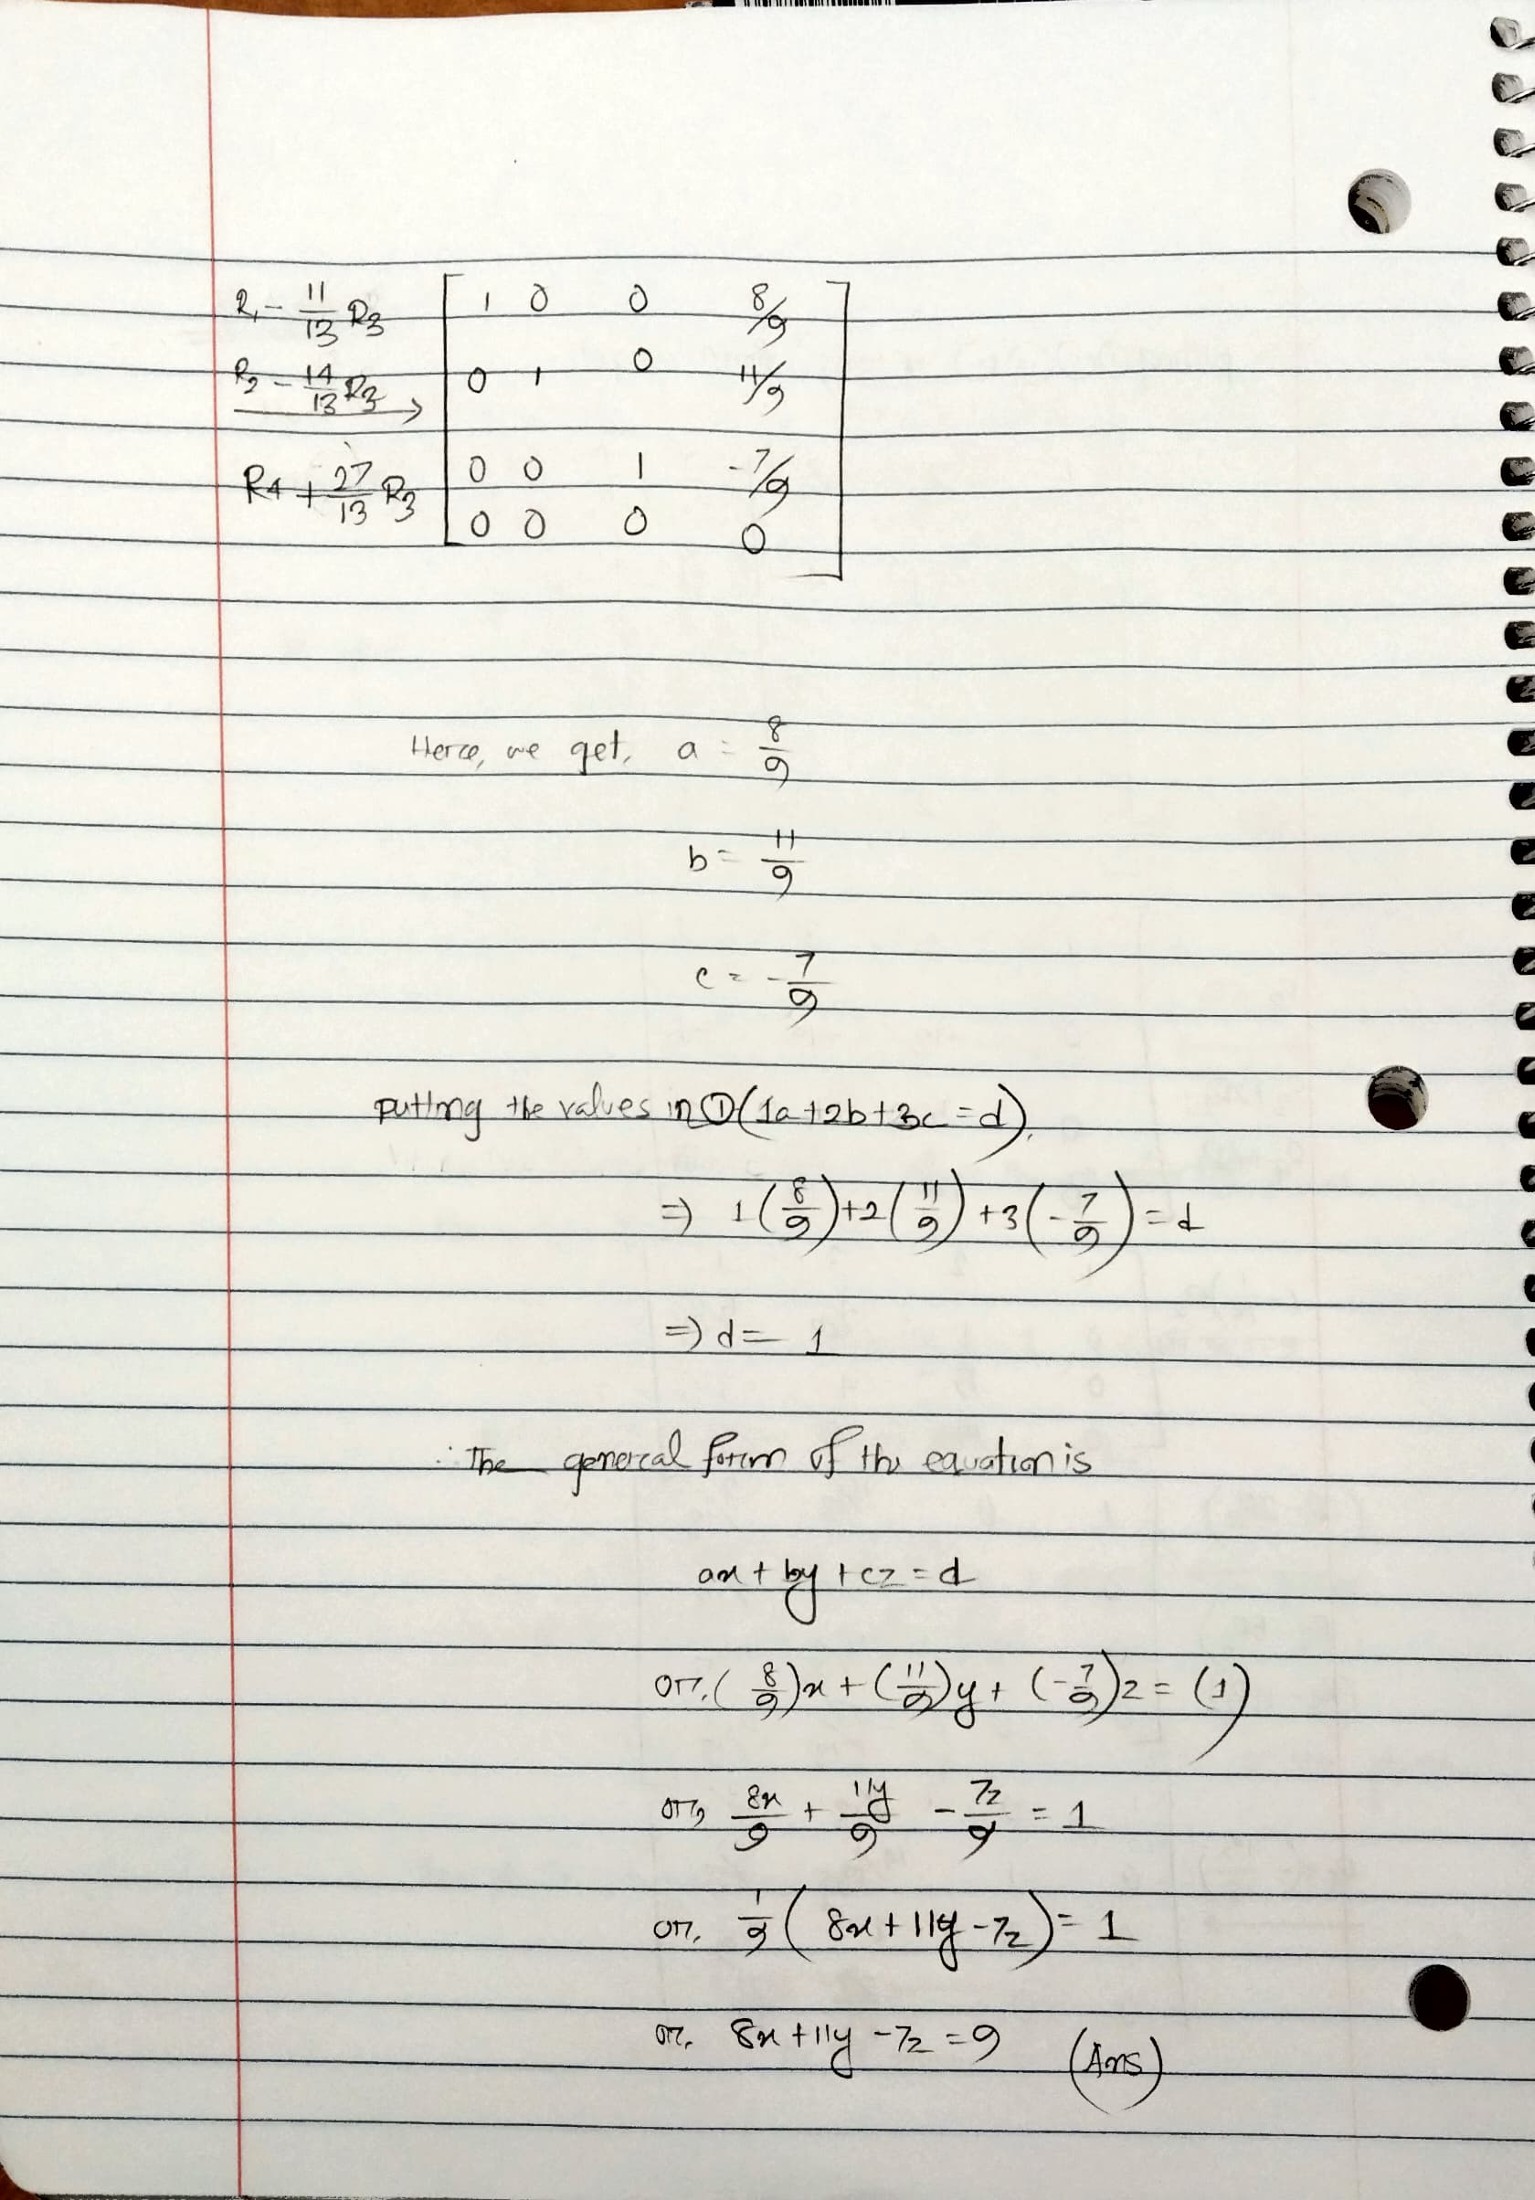 R₁ - 11/13 R₃ [ 1 0 0 8/9 ]
R₂ - 14/13 R₃ → [ 0 1 0 11/9 ]
R4 + 27/13 R₃ [ 0 0 1 -7/9 ]
[ 0 0 0 0 ]
Here, we get, a = 8/9
b = 11/9
c = -7/9
putting the values in ① (1a+2b+3c=d),
⇒ 1(8/9)+2(11/9)+3(-7/9)=d
⇒ d = 1
∴ The general form of the equation is
ax + by + cz = d
or, (8/9)x + (11/9)y + (-7/9)z = (1)
or, 8x/9 + 11y/9 - 7z/9 = 1
or, 1/9 (8x + 11y - 7z) = 1
or, 8x + 11y - 7z = 9 (Ans)